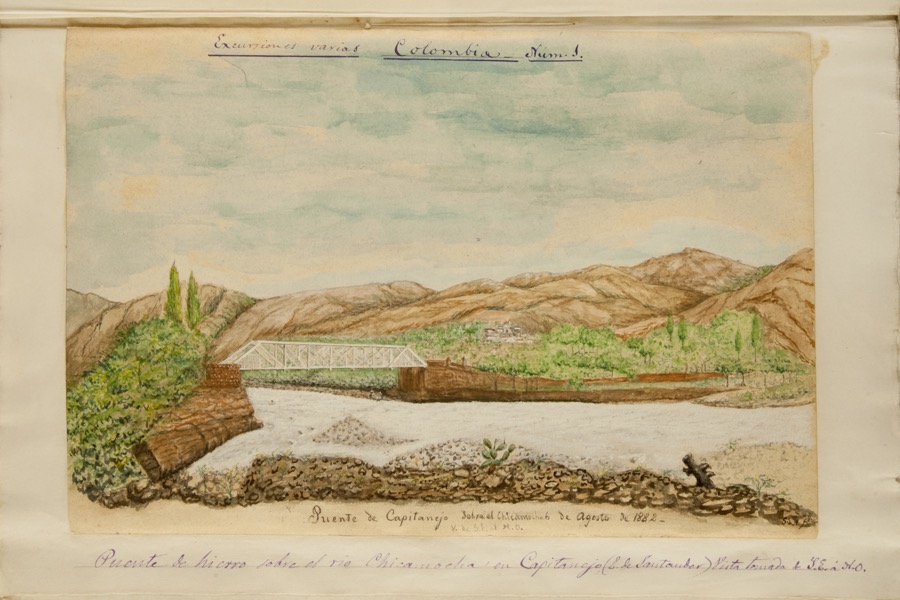 Excursiones varias Colombia_ Núm. 1.
Puente de Capitanejo Sobre el Chicamocha 6 de Agosto de 1882_
Puente de hierro sobre el río Chicamocha en Capitanejo (E. de Santander) Vista tomada de S.E. á N.O.